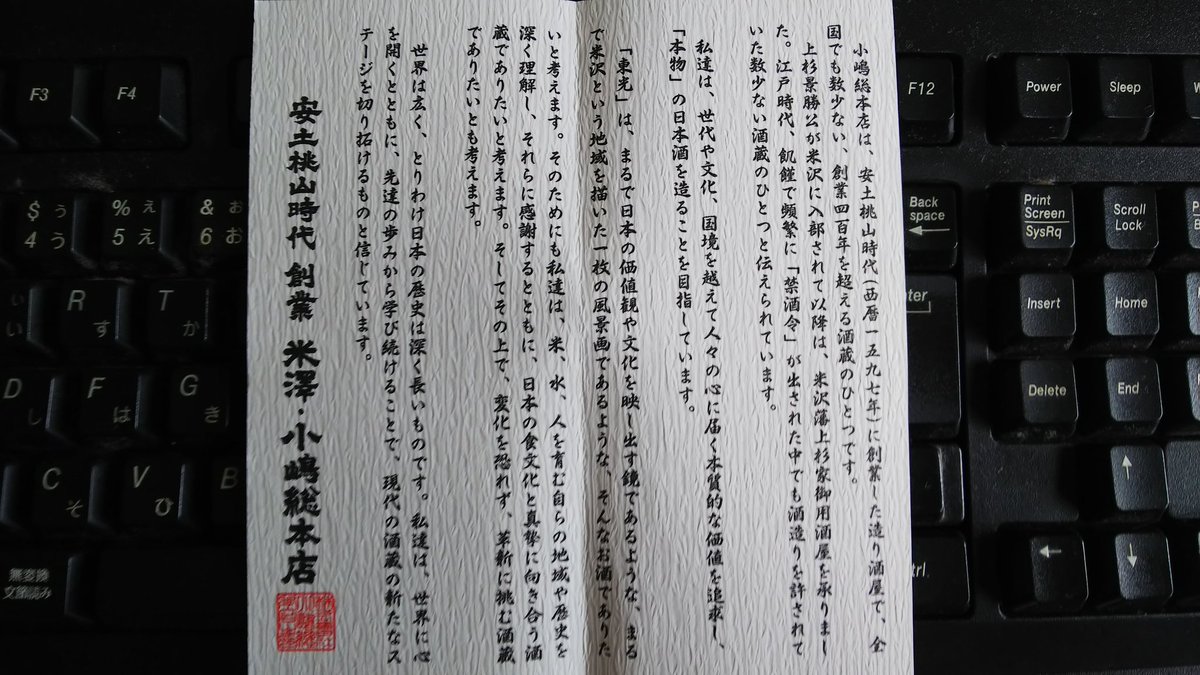 小嶋総本店は、安土桃山時代(西暦一五九七年)に創業した造り酒屋で、全
国でも数少ない、創業四百年を超える酒蔵のひとつです。
上杉景勝公が米沢に入部されて以降は、米沢藩上杉家御用酒屋を承りまし
た。江戸時代、飢饉で頻繁に「禁酒令」が出された中でも酒造りを許されて
いた数少ない酒蔵のひとつと伝えられています。
私達は、世代や文化、国境を越えて人々の心に届く本質的な価値を追求し、
「本物」の日本酒を造ることを目指しています。
「東光」は、まるで日本の価値観や文化を映し出す鏡であるような、まる
で米沢という地域を描いた一枚の風景画であるような、そんなお酒でありた
いと考えます。そのためにも私達は、米、水、人を育む自らの地域や歴史を
深く理解し、それらに感謝するとともに、日本の食文化と真摯に向き合う酒
蔵でありたいと考えます。そしてその上で、変化を恐れず、革新に挑む酒蔵
でありたいとも考えます。
世界は広く、とりわけ日本の歴史は深く長いものです。私達は、世界に心
を開くとともに、先達の歩みから学び続けることで、現代の酒蔵の新たなス
テージを切り拓けるものと信じています。
安土桃山時代 創業 米澤・小嶋総本店
F3
F4
F12
Power
Sleep
W
$ ぅ
4 う
% ぇ
5 え
& ぉ
6 お
Back
space
Print
Screen
SysRq
Scroll
Lock
P
B
い
R
す
T
か
Insert
Home
D
し
F
は
G
き
Delete
End
C
そ
V
ひ
B
無変換
文節読み
trl
↑
←
↓